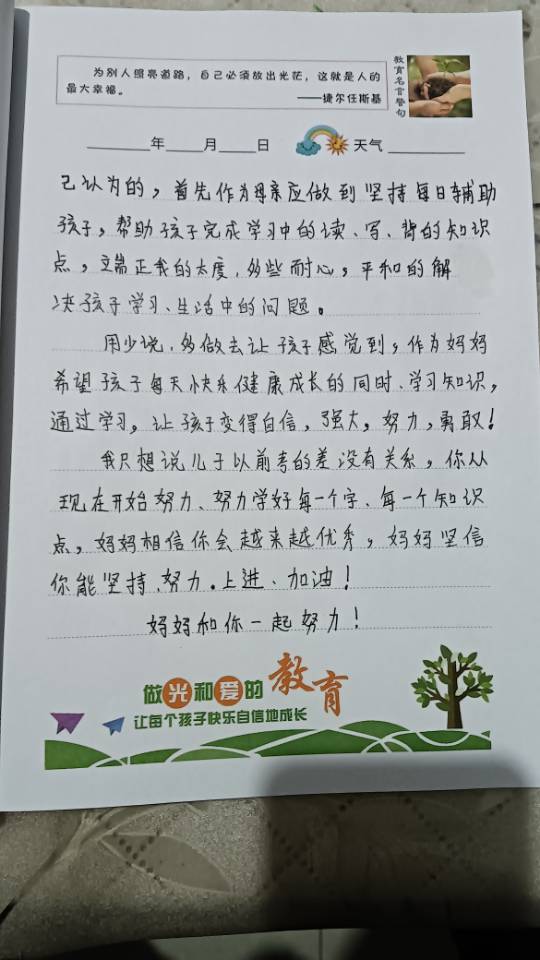 为别人照亮道路，自己必须放出光茫，这就是人的
最大幸福。
——捷尔任斯基
教育名言警句
______年____月____日 天气________
己认为的，首先作为母亲应做到坚持每日辅助
孩子，帮助孩子完成学习中的读、写、背的知识
点，端正我的太度，多些耐心，平和的解
决孩子学习、生活中的问题。
用少说，多做去让孩子感觉到，作为妈妈
希望孩子每天快乐健康成长的同时、学习知识，
通过学习，让孩子变得自信，强大，努力，勇敢！
我只想说儿子以前考的差没有关系，你从
现在开始努力、努力学好每一个字、每一个知识
点，妈妈相信你会越来越优秀，妈妈坚信
你能坚持、努力。上进、加油！
妈妈和你一起努力！
做光和爱的教育
让每个孩子快乐自信地成长